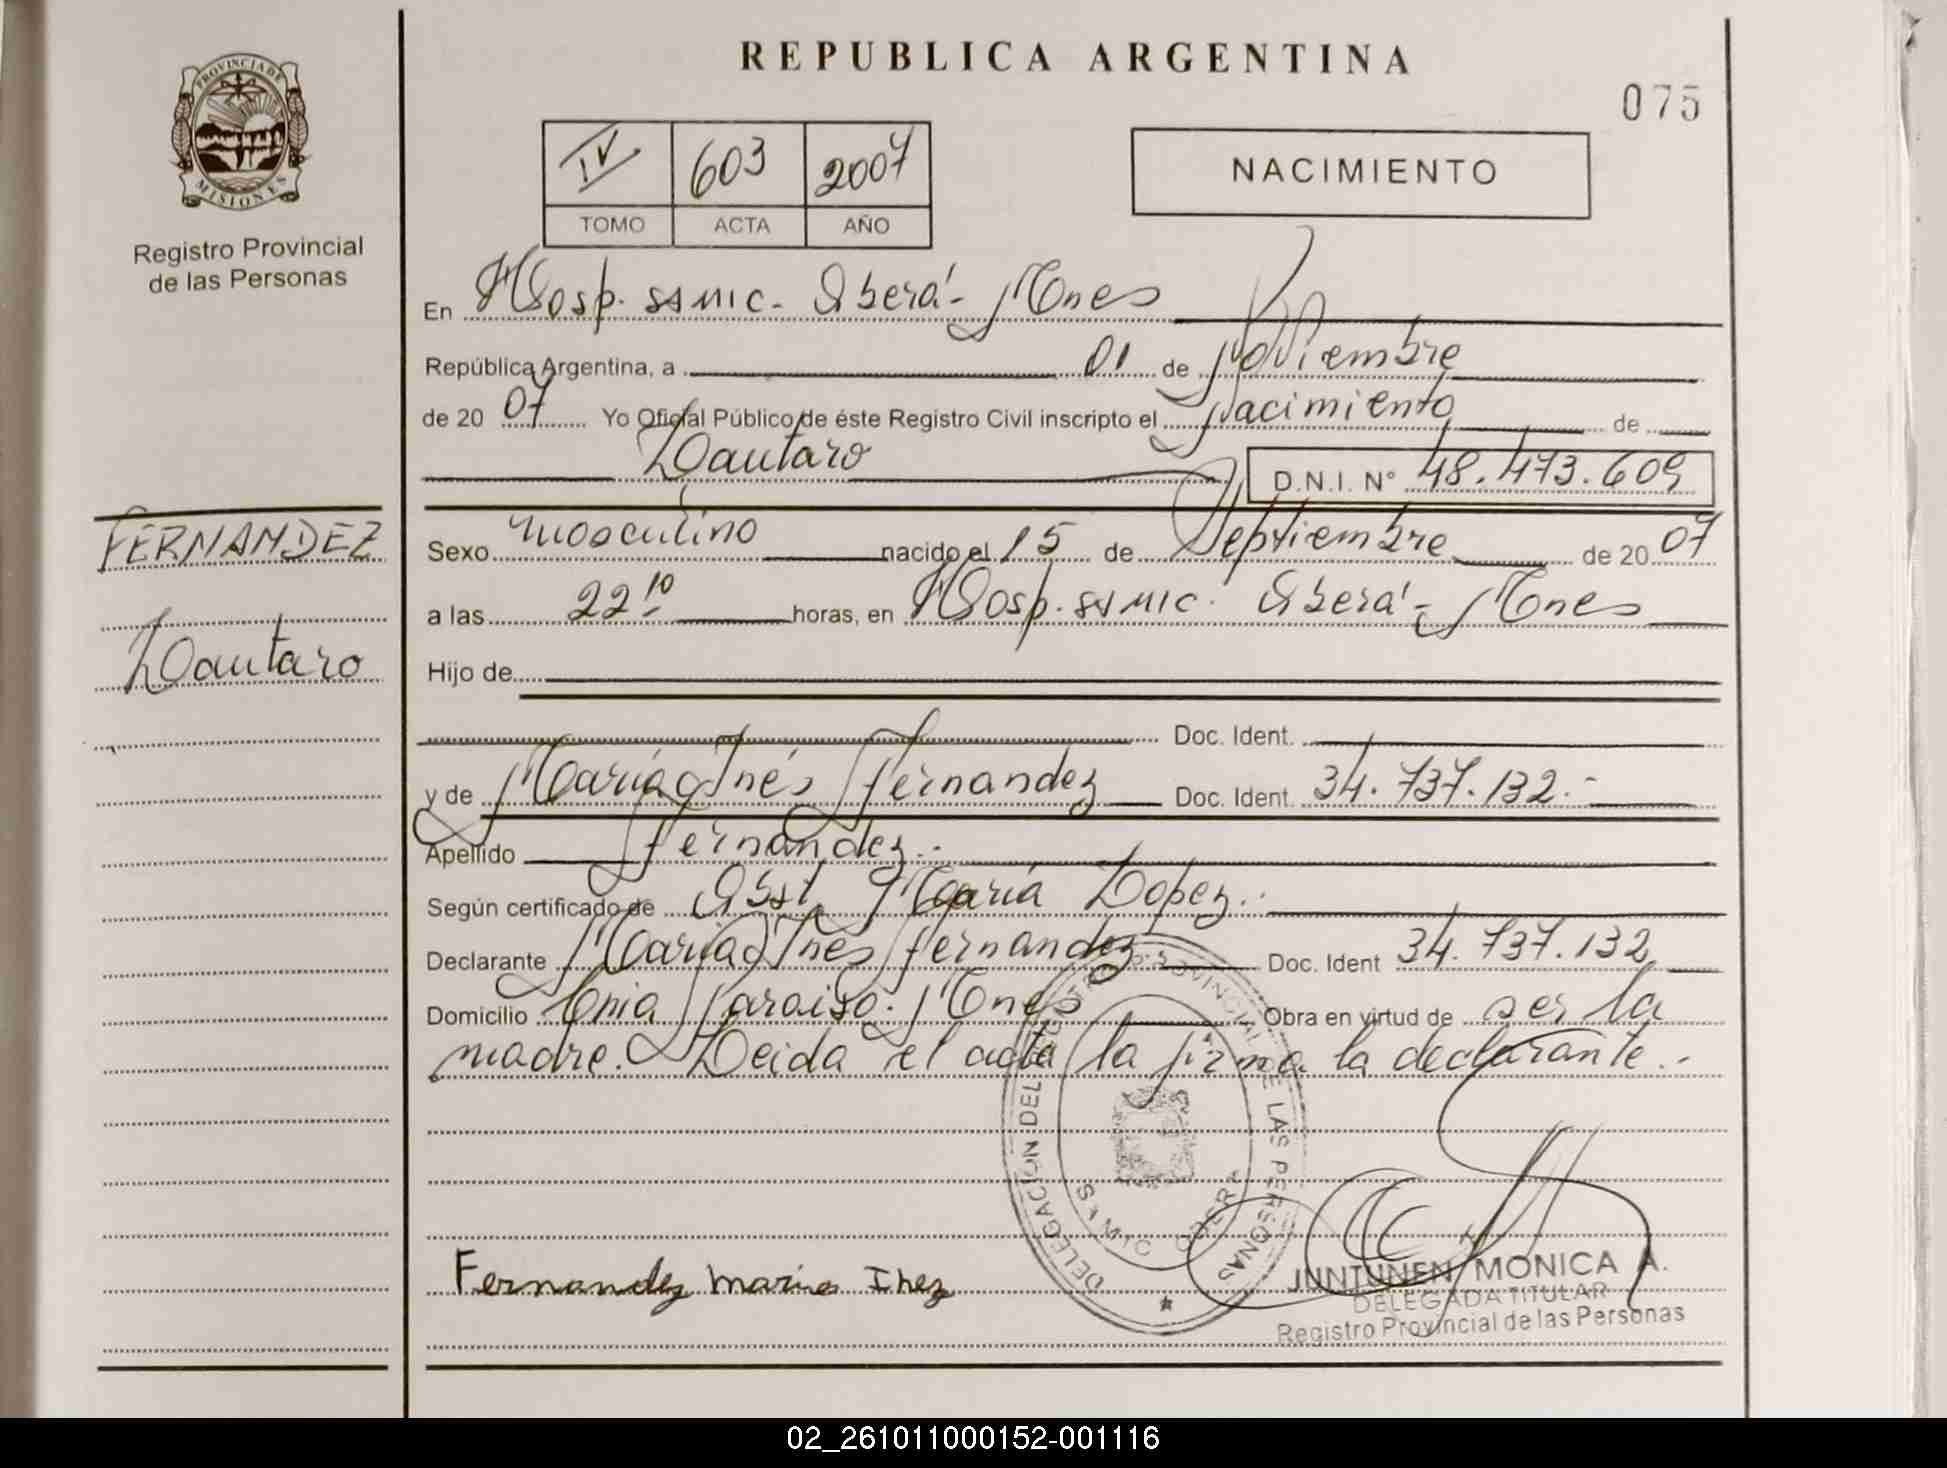 REPUBLICA ARGENTINA
075
PROVINCIA DE
MISIONES
Registro Provincial
de las Personas
IV 603 2007
TOMO ACTA AÑO
NACIMIENTO
En Hosp. SAMIC - Oberá - Mnes
República Argentina, a 01 de Noviembre
de 2007 Yo Oficial Público de éste Registro Civil inscripto el nacimiento de
Lautaro D.N.I. N° 48.473.609
FERNANDEZ
Lautaro
Sexo masculino nacido el 15 de Septiembre de 2007
a las 22 10 horas, en Hosp. SAMIC. Oberá - Mnes
Hijo de
Doc. Ident.
y de María Inés Fernandez Doc. Ident. 34.737.132.-
Apellido Fernandez.-
Según certificado de Obst. María Lopez.-
Declarante María Inés Fernandez Doc. Ident 34.737.132
Domicilio Cnia Paraiso. Mnes Obra en virtud de ser la
madre. Leida el acta la firma la declarante.-
DELEGACION DEL REGISTRO PROVINCIAL DE LAS PERSONAS
SAMIC OBERA
Fernandez Maria Inez
JUNTUNEN MONICA A.
DELEGADA TITULAR
Registro Provincial de las Personas
02_261011000152-001116